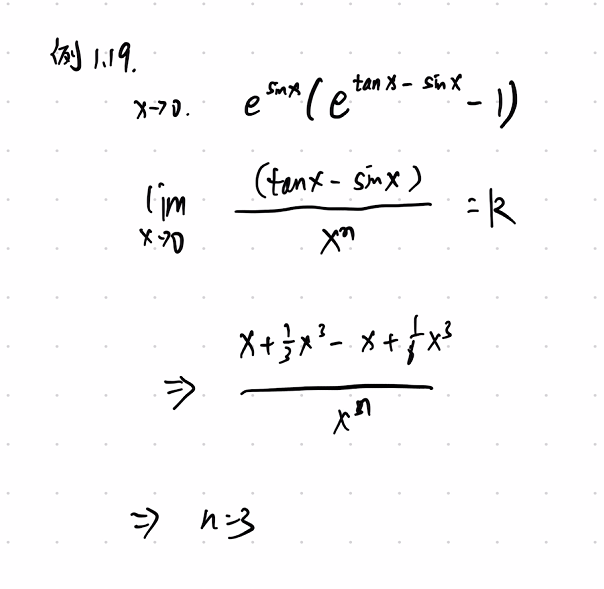 例 1.19.
x→0. e^{sinx}(e^{tanx - sinx} - 1)
lim_{x→0} \frac{(tanx - sinx)}{x^n} = k
⇒ \frac{x + \frac{1}{3}x^3 - x + \frac{1}{6}x^3}{x^n}
⇒ n=3